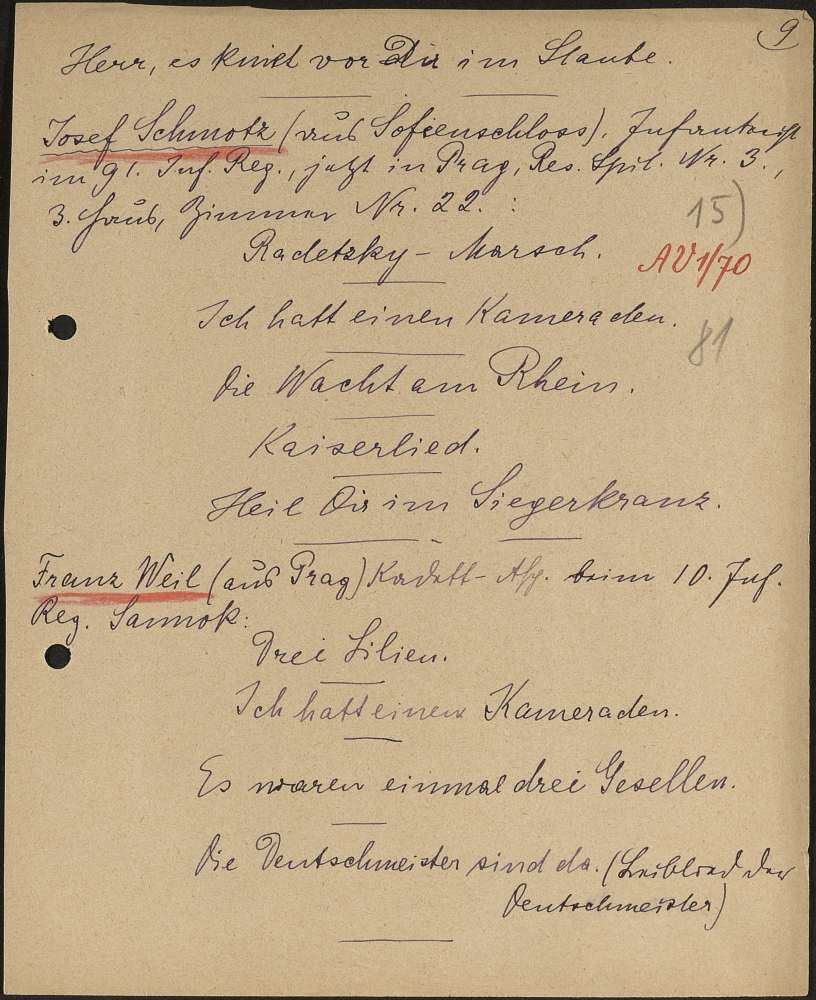 9
Herr, es kniet vor Dir im Staube.
Josef Schmotz (aus Sofienschloss), Infanterist
im 91. Inf. Reg., jetzt in Prag, Res. Spit. Nr. 3.,
3. Haus, Zimmer Nr. 22. :
15)
Radetzky - Marsch.
AV 1/70
Ich hatt einen Kameraden.
81
Die Wacht am Rhein.
Kaiserlied.
Heil Dir im Siegerkranz.
Franz Weil (aus Prag) Kadett - Asp. beim 10. Inf.
Reg. Sannok:
Drei Lilien.
Ich hatt einen Kameraden.
Es waren einmal drei Gesellen.
Die Deutschmeister sind da. (Leiblied der
Deutschmeister)